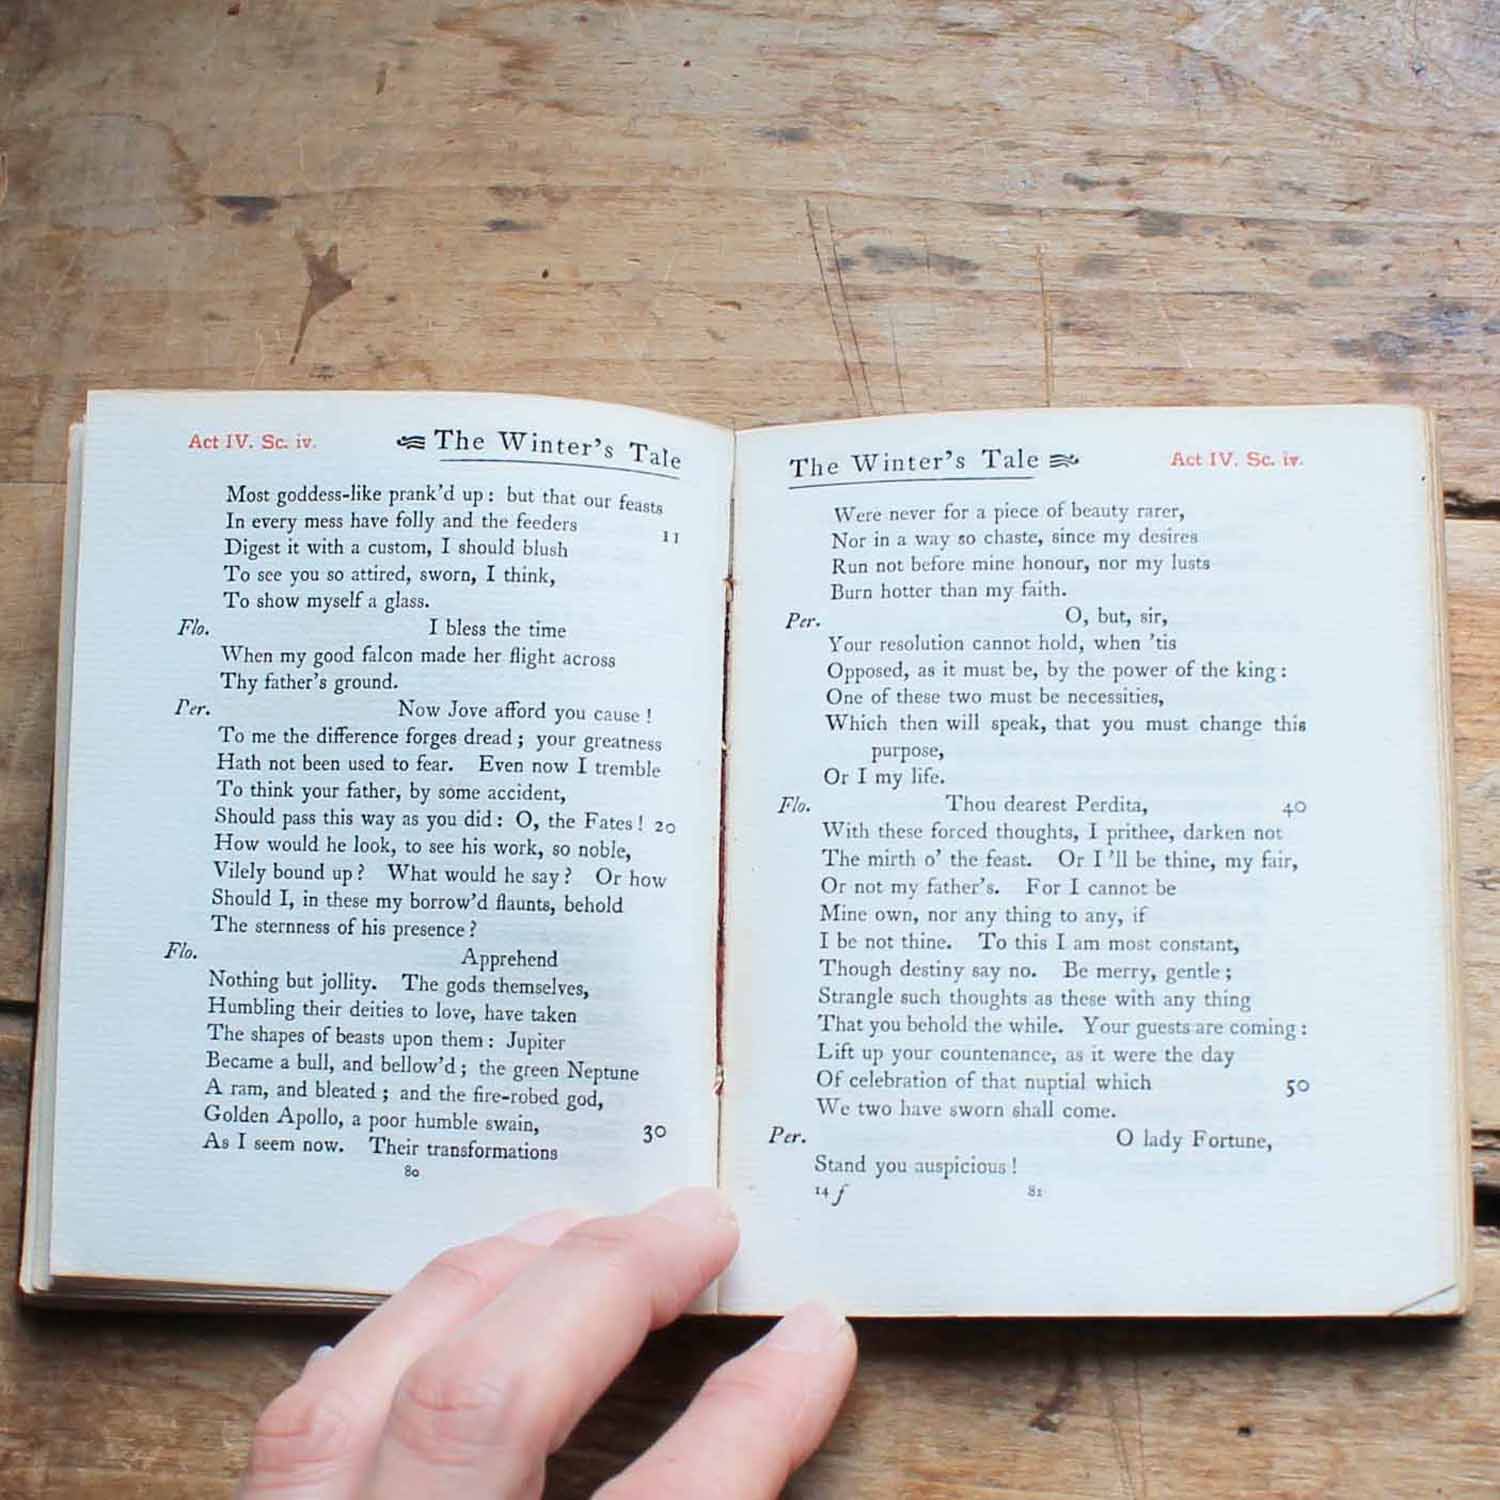 Act IV. Sc. iv. The Winter's Tale
Most goddess-like prank'd up: but that our feasts
In every mess have folly and the feeders 11
Digest it with a custom, I should blush
To see you so attired, sworn, I think,
To show myself a glass.
Flo. I bless the time
When my good falcon made her flight across
Thy father's ground.
Per. Now Jove afford you cause!
To me the difference forges dread; your greatness
Hath not been used to fear. Even now I tremble
To think your father, by some accident,
Should pass this way as you did: O, the Fates! 20
How would he look, to see his work, so noble,
Vilely bound up? What would he say? Or how
Should I, in these my borrow'd flaunts, behold
The sternness of his presence?
Flo. Apprehend
Nothing but jollity. The gods themselves,
Humbling their deities to love, have taken
The shapes of beasts upon them: Jupiter
Became a bull, and bellow'd; the green Neptune
A ram, and bleated; and the fire-robed god,
Golden Apollo, a poor humble swain, 30
As I seem now. Their transformations
80
The Winter's Tale Act IV. Sc. iv.
Were never for a piece of beauty rarer,
Nor in a way so chaste, since my desires
Run not before mine honour, nor my lusts
Burn hotter than my faith.
Per. O, but, sir,
Your resolution cannot hold, when 'tis
Opposed, as it must be, by the power of the king:
One of these two must be necessities,
Which then will speak, that you must change this
purpose,
Or I my life.
Flo. Thou dearest Perdita, 40
With these forced thoughts, I prithee, darken not
The mirth o' the feast. Or I'll be thine, my fair,
Or not my father's. For I cannot be
Mine own, nor any thing to any, if
I be not thine. To this I am most constant,
Though destiny say no. Be merry, gentle;
Strangle such thoughts as these with any thing
That you behold the while. Your guests are coming:
Lift up your countenance, as it were the day
Of celebration of that nuptial which 50
We two have sworn shall come.
Per. O lady Fortune,
Stand you auspicious!
14 f 81